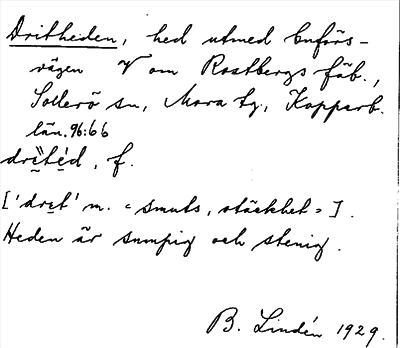 Dritheden, hed utmed buförs-
vägen V om Rostbergs fäb.,
Sollerö sn, Mora tg, Kopparb.
län. 96:66
drḭ̀téd, f.
['drḭt' m. = smuts, stäckhet = ].
Heden är sumpig och stenig.
B. Lindén 1929.